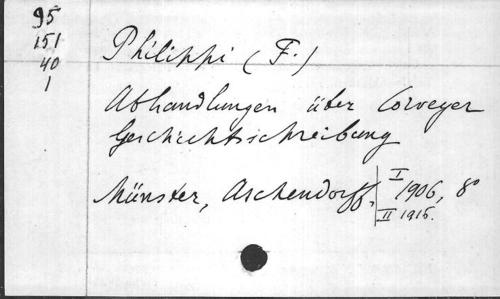 95
151
40
1
Philippi (F.)
Abhandlungen über Corveyer
Geschichtsschreibung
Münster, Aschendorff, I 1906, 8°
II 1916.